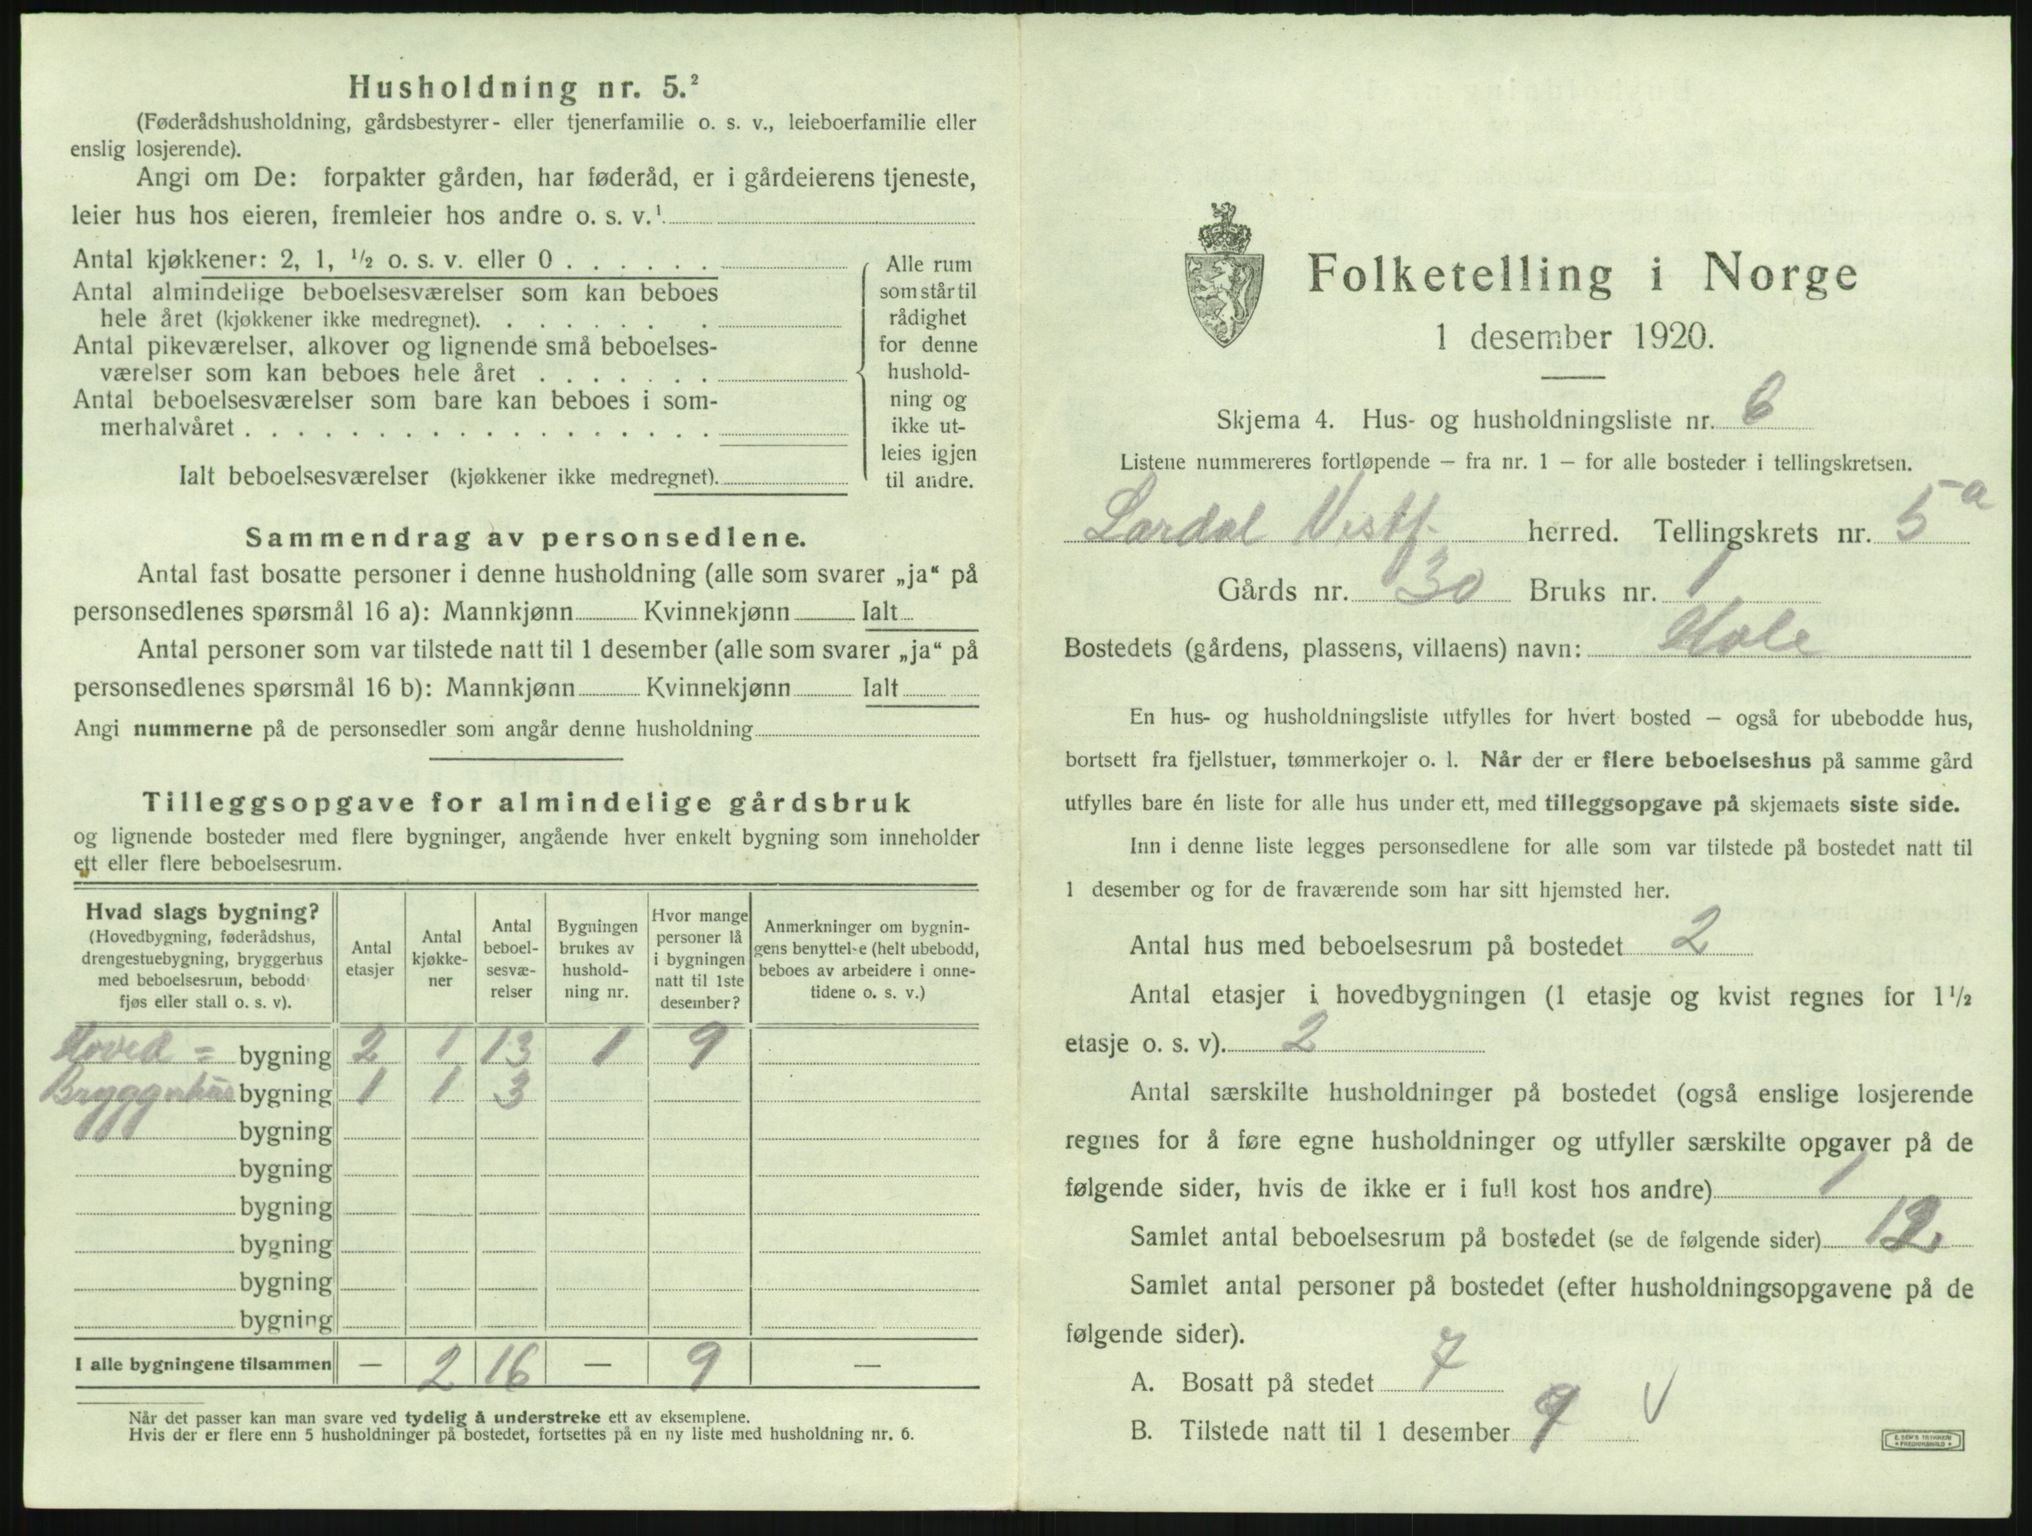 Husholdning nr. 5.²
(Føderådshusholdning, gårdsbestyrer- eller tjenerfamilie o. s. v., leieboerfamilie eller
enslig losjerende).
Angi om De: forpakter gården, har føderåd, er i gårdeierens tjeneste,
leier hus hos eieren, fremleier hos andre o. s. v.¹
Antal kjøkkener: 2, 1, ½ o. s. v. eller 0 . . . . . .
Antal almindelige beboelsesværelser som kan beboes
hele året (kjøkkener ikke medregnet). . . . . . . .
Antal pikeværelser, alkover og lignende små beboelses-
værelser som kan beboes hele året . . . . . . .
Antal beboelsesværelser som bare kan beboes i som-
merhalvåret . . . . . . . . . . . . . . . . . .
Ialt beboelsesværelser (kjøkkener ikke medregnet).
Alle rum
som står til
rådighet
for denne
hushold-
ning og
ikke ut-
leies igjen
til andre.
Sammendrag av personsedlene.
Antal fast bosatte personer i denne husholdning (alle som svarer „ja“ på
personsedlenes spørsmål 16 a): Mannkjønn Kvinnekjønn Ialt
Antal personer som var tilstede natt til 1 desember (alle som svarer „ja“ på
personsedlenes spørsmål 16 b): Mannkjønn Kvinnekjønn Ialt
Angi nummerne på de personsedler som angår denne husholdning
Tilleggsopgave for almindelige gårdsbruk
og lignende bosteder med flere bygninger, angående hver enkelt bygning som inneholder
ett eller flere beboelsesrum.
Hvad slags bygning?
(Hovedbygning, føderådshus,
drengestuebygning, bryggerhus
med beboelsesrum, bebodd
fjøs eller stall o. s. v).
Antal
etasjer
Antal
kjøkke-
ner
Antal
beboel-
sesvæ-
relser
Bygningen
brukes av
hushold-
ning nr.
Hvor mange
personer lå
i bygningen
natt til 1ste
desember?
Anmerkninger om bygnin-
gens benyttel-e (helt ubebodd,
beboes av arbeidere i onne-
tidene o. s. v.)
Hoved = bygning 2 1 13 1 9
Bryggerhus bygning 1 1 3
bygning
bygning
bygning
bygning
bygning
bygning
I alle bygningene tilsammen — 2 16 — 9 —
Når det passer kan man svare ved tydelig å understreke ett av eksemplene.
Hvis der er flere enn 5 husholdninger på bostedet, fortsettes på en ny liste med husholdning nr. 6.
Folketelling i Norge
1 desember 1920.
Skjema 4. Hus- og husholdningsliste nr. 6
Listene nummereres fortløpende — fra nr. 1 — for alle bosteder i tellingskretsen.
Lardal Vestf. herred. Tellingskrets nr. 5a
Gårds nr. 30 Bruks nr. 1
Bostedets (gårdens, plassens, villaens) navn: Hole
En hus- og husholdningsliste utfylles for hvert bosted — også for ubebodde hus,
bortsett fra fjellstuer, tømmerkojer o. l. Når der er flere beboelseshus på samme gård
utfylles bare én liste for alle hus under ett, med tilleggsopgave på skjemaets siste side.
Inn i denne liste legges personsedlene for alle som var tilstede på bostedet natt til
1 desember og for de fraværende som har sitt hjemsted her.
Antal hus med beboelsesrum på bostedet 2
Antal etasjer i hovedbygningen (1 etasje og kvist regnes for 1½
etasje o. s. v). 2
Antal særskilte husholdninger på bostedet (også enslige losjerende
regnes for å føre egne husholdninger og utfyller særskilte opgaver på de
følgende sider, hvis de ikke er i full kost hos andre) 1
Samlet antal beboelsesrum på bostedet (se de følgende sider)
Samlet antal personer på bostedet (efter husholdningsopgavene på de
følgende sider).
A. Bosatt på stedet 7
B. Tilstede natt til 1 desember 9 V
E. SEM'S TRYKKERI
FREDRIKSHALD